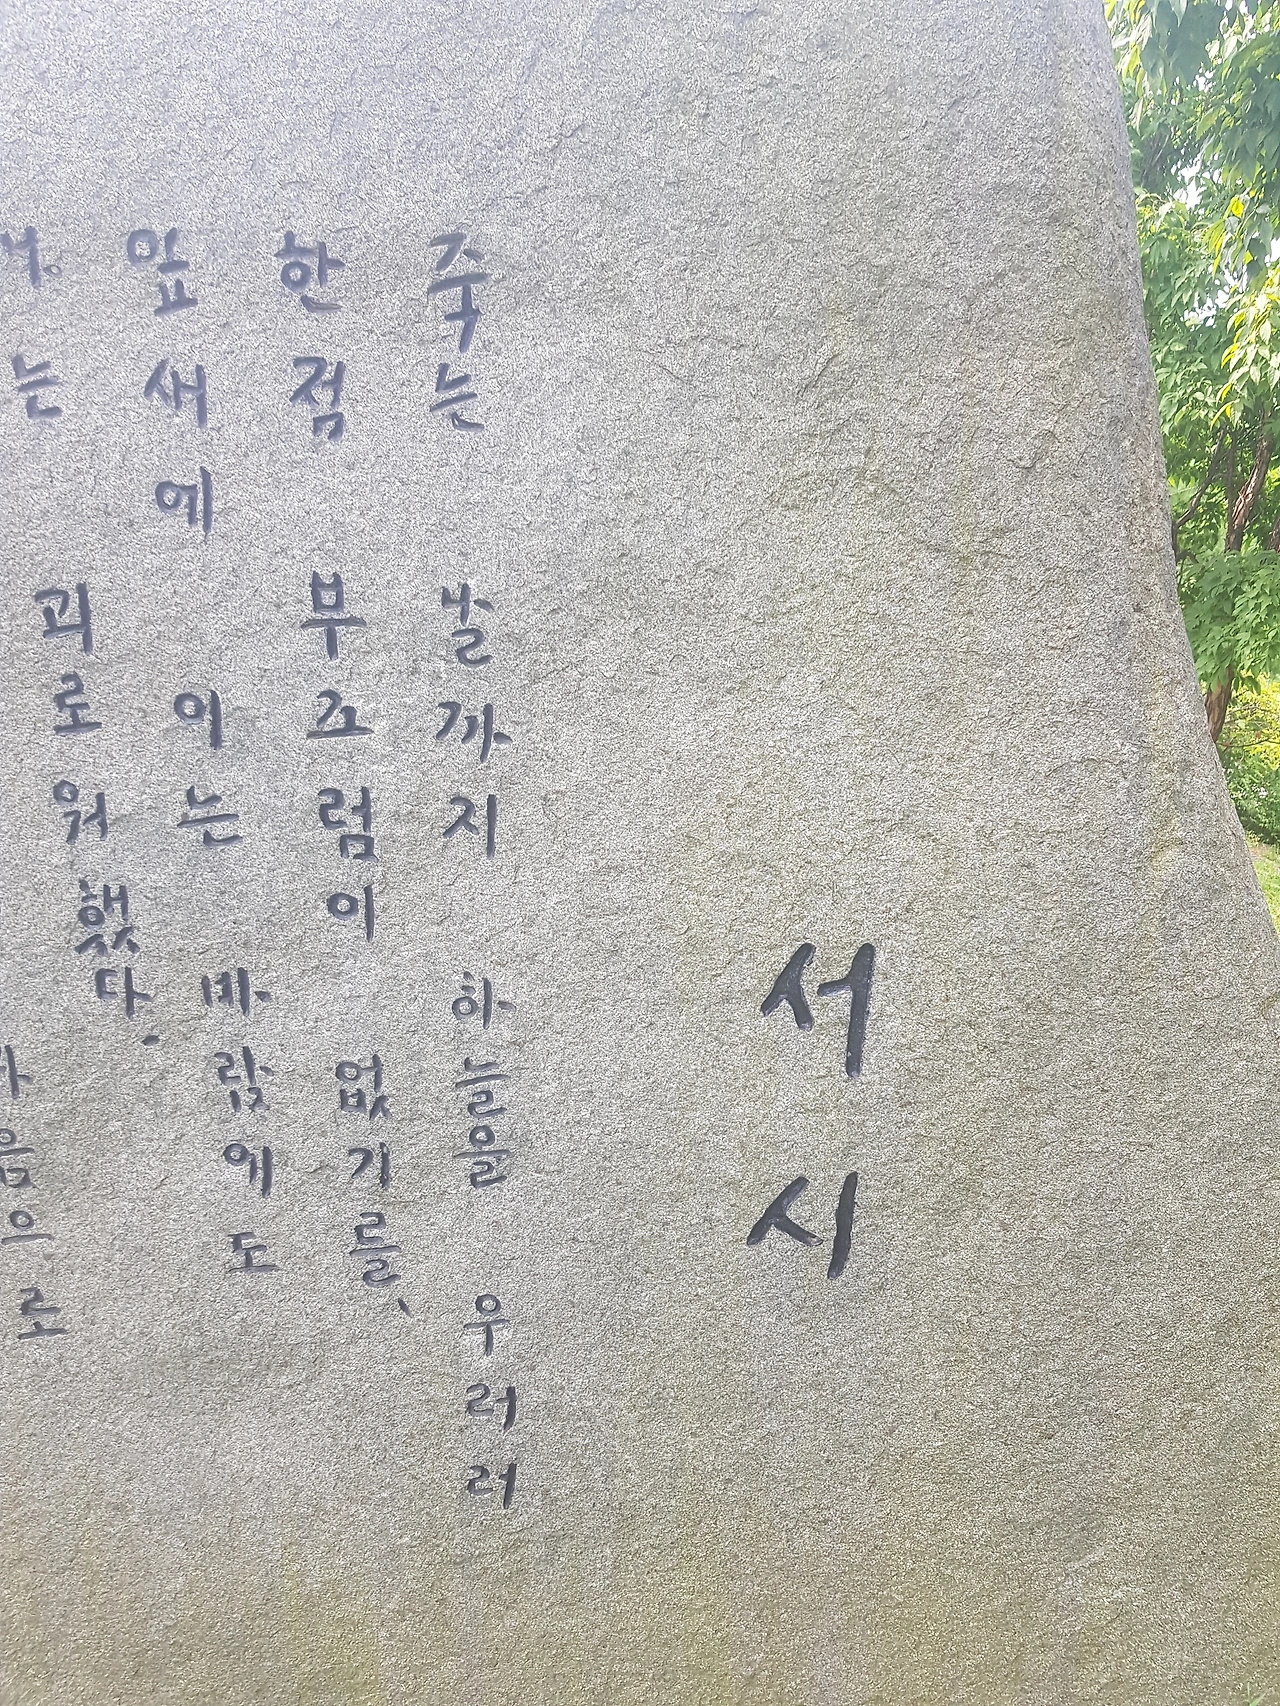 서시
죽는 날까지 하늘을 우러러
한점 부끄럼이 없기를,
잎새에 이는 바람에도
나는 괴로워했다.
마음으로